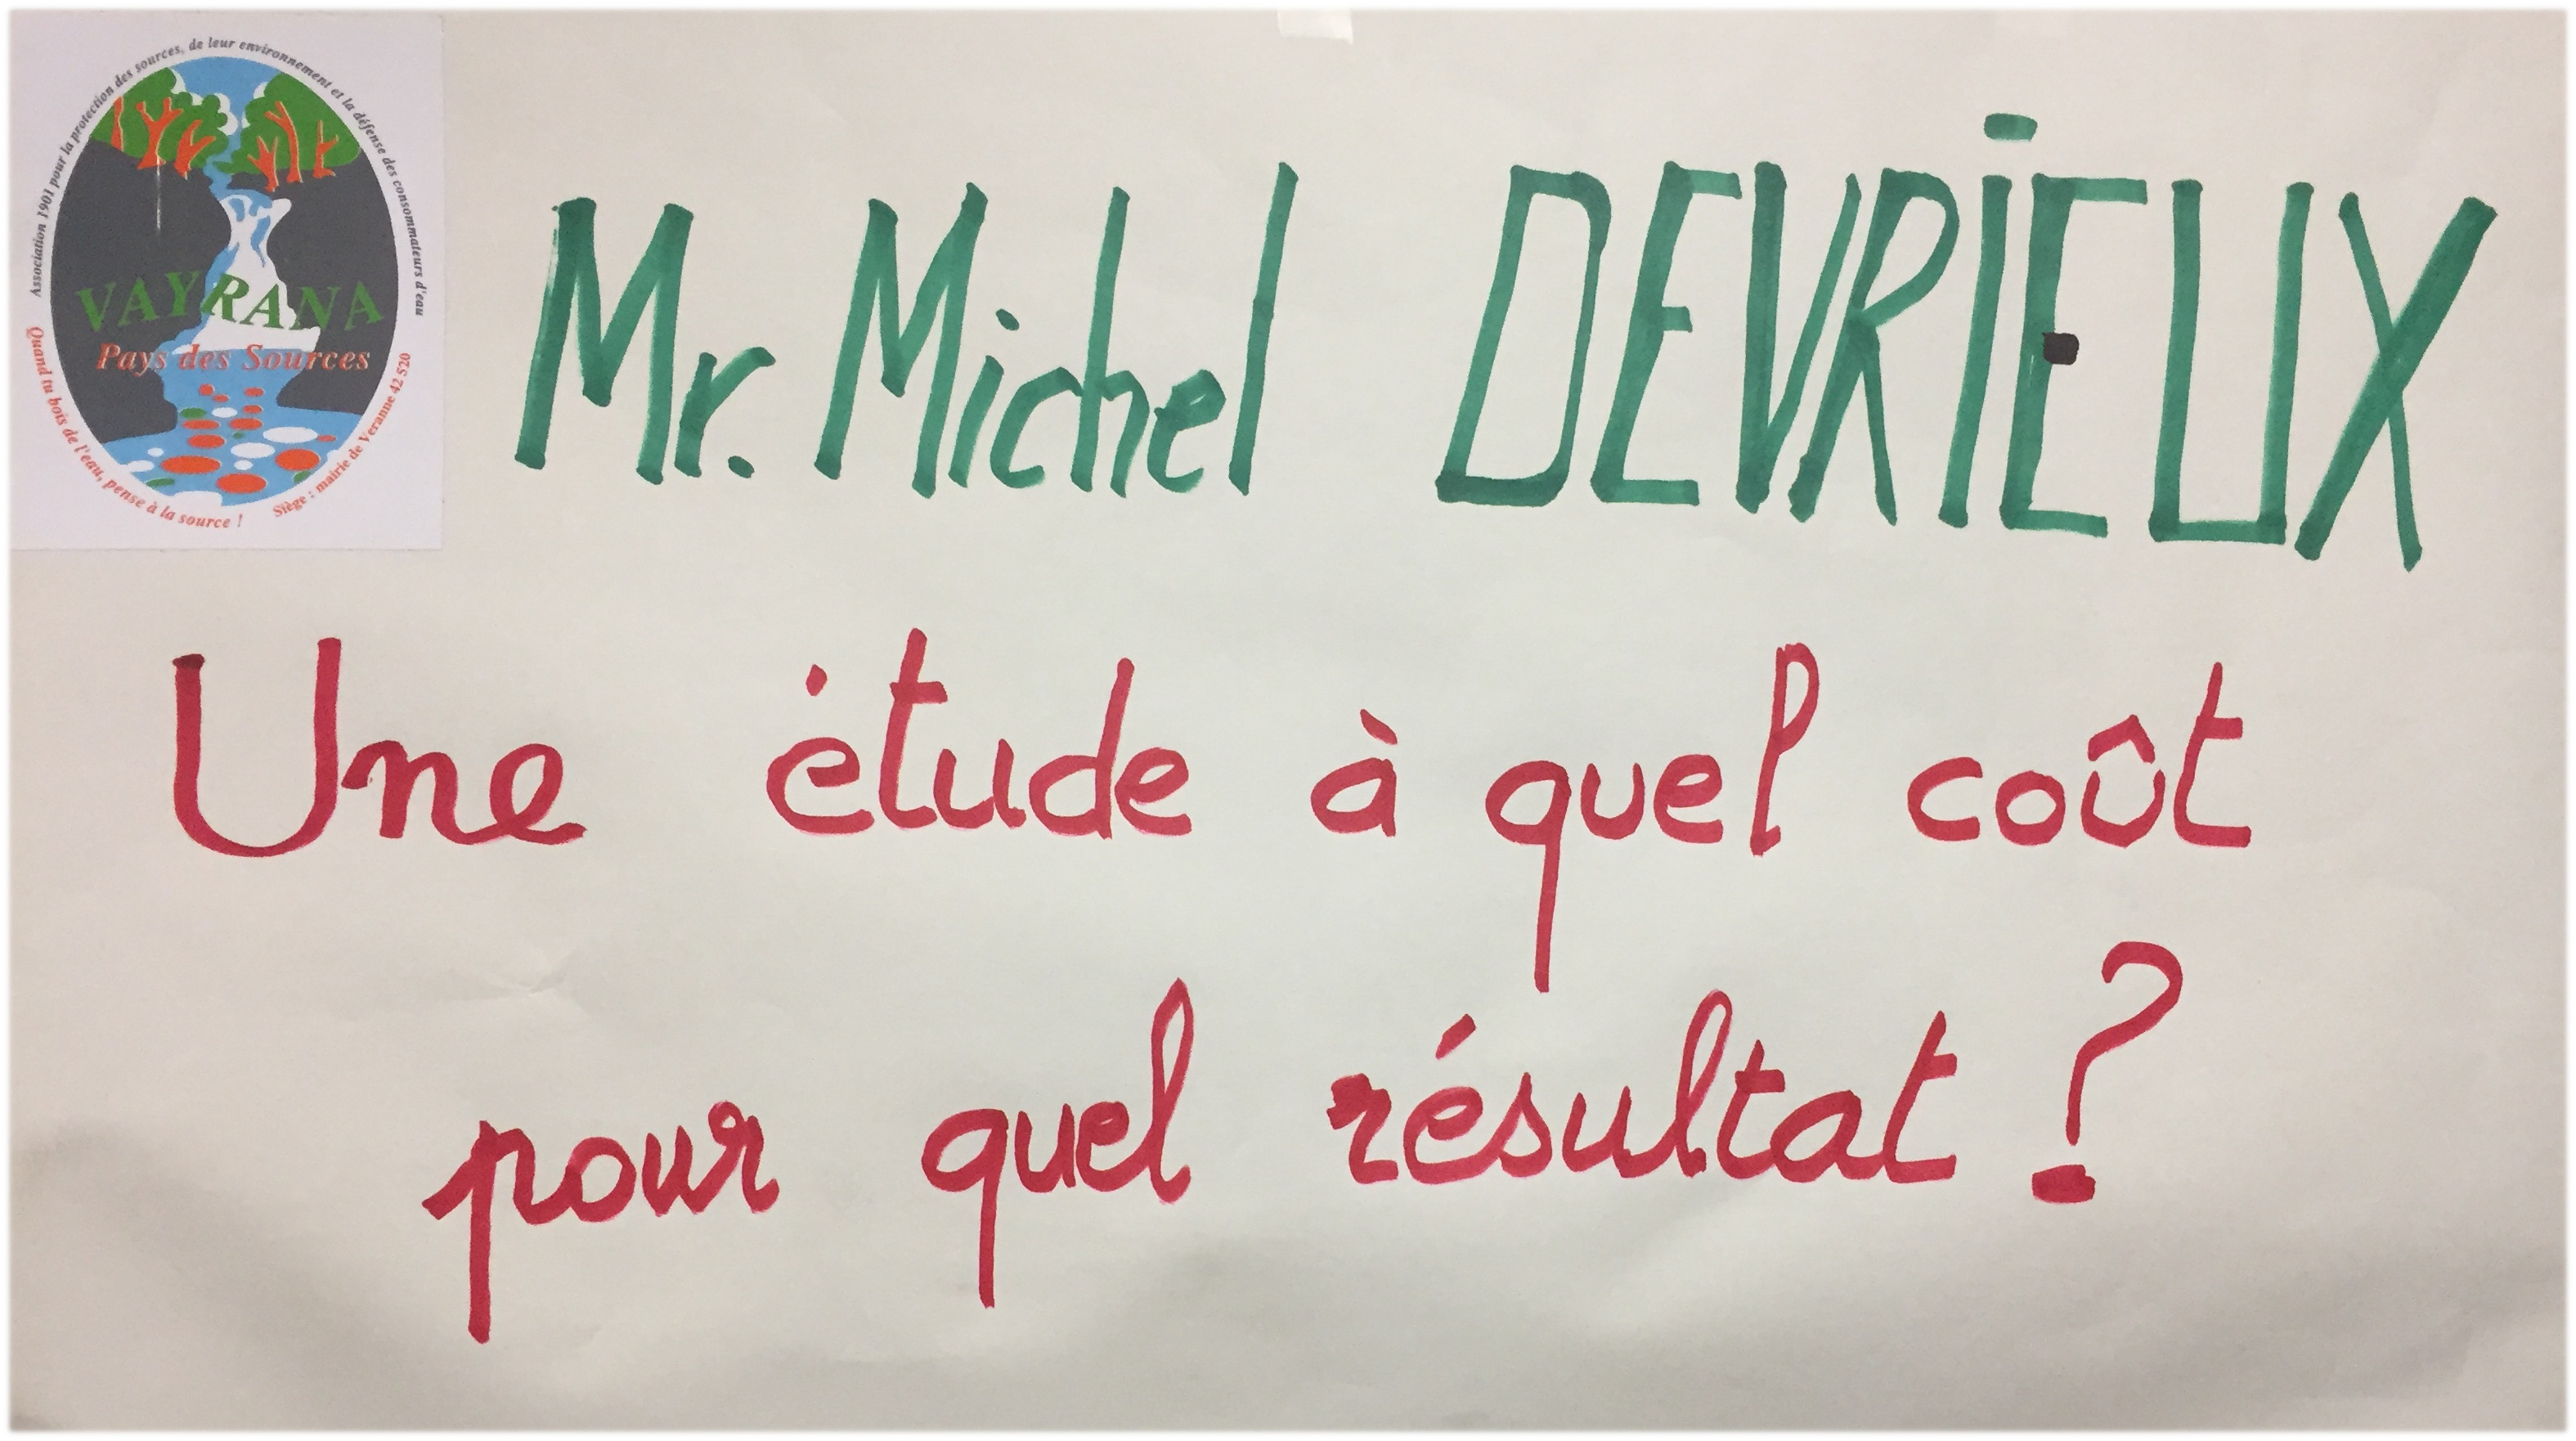 Association 1901 pour la protection des sources, de leur environnement et la défense des consommateurs d'eau
VAYRANA
Pays des Sources
Quand tu bois de l'eau, pense à la source !
Siège : mairie de Veranne 42 520
Mr. Michel DEVRİEUX
Une étude à quel coût
pour quel résultat ?